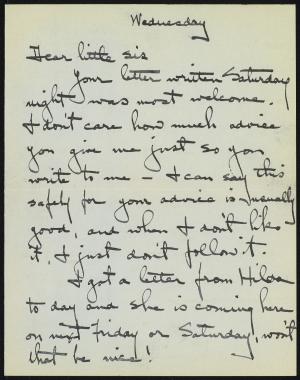 Wednesday
Dear little sis
Your letter written Saturday
night was most welcome.
I don't care how much advice
you give me just so you
write to me – I can say this
safely for your advice is usually
good, and when I don't like
it, I just don't follow it.
I got a letter from Hilda
to day and she is coming here
on next Friday or Saturday, won't
that be nice!